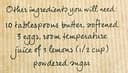 Other ingredients you will need
10 tablespoons butter, softened
3 eggs, room temperature
juice of 3 lemons (1/2 cup)
powdered sugar